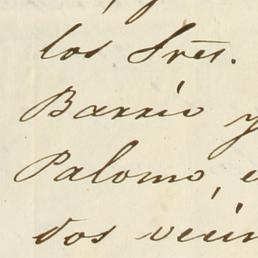 los Sres.
Barrio y
Palomo,
dos